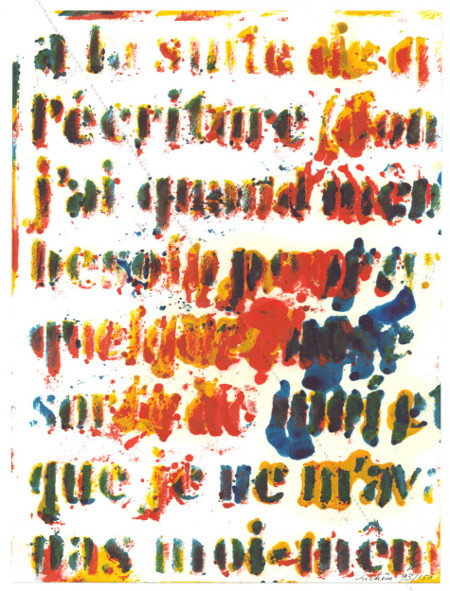 à la suite de q
l'écriture (don
j'ai quand mêm
besoin pour
quelque
sorte de
que je ne m'av
pas moi-mêm